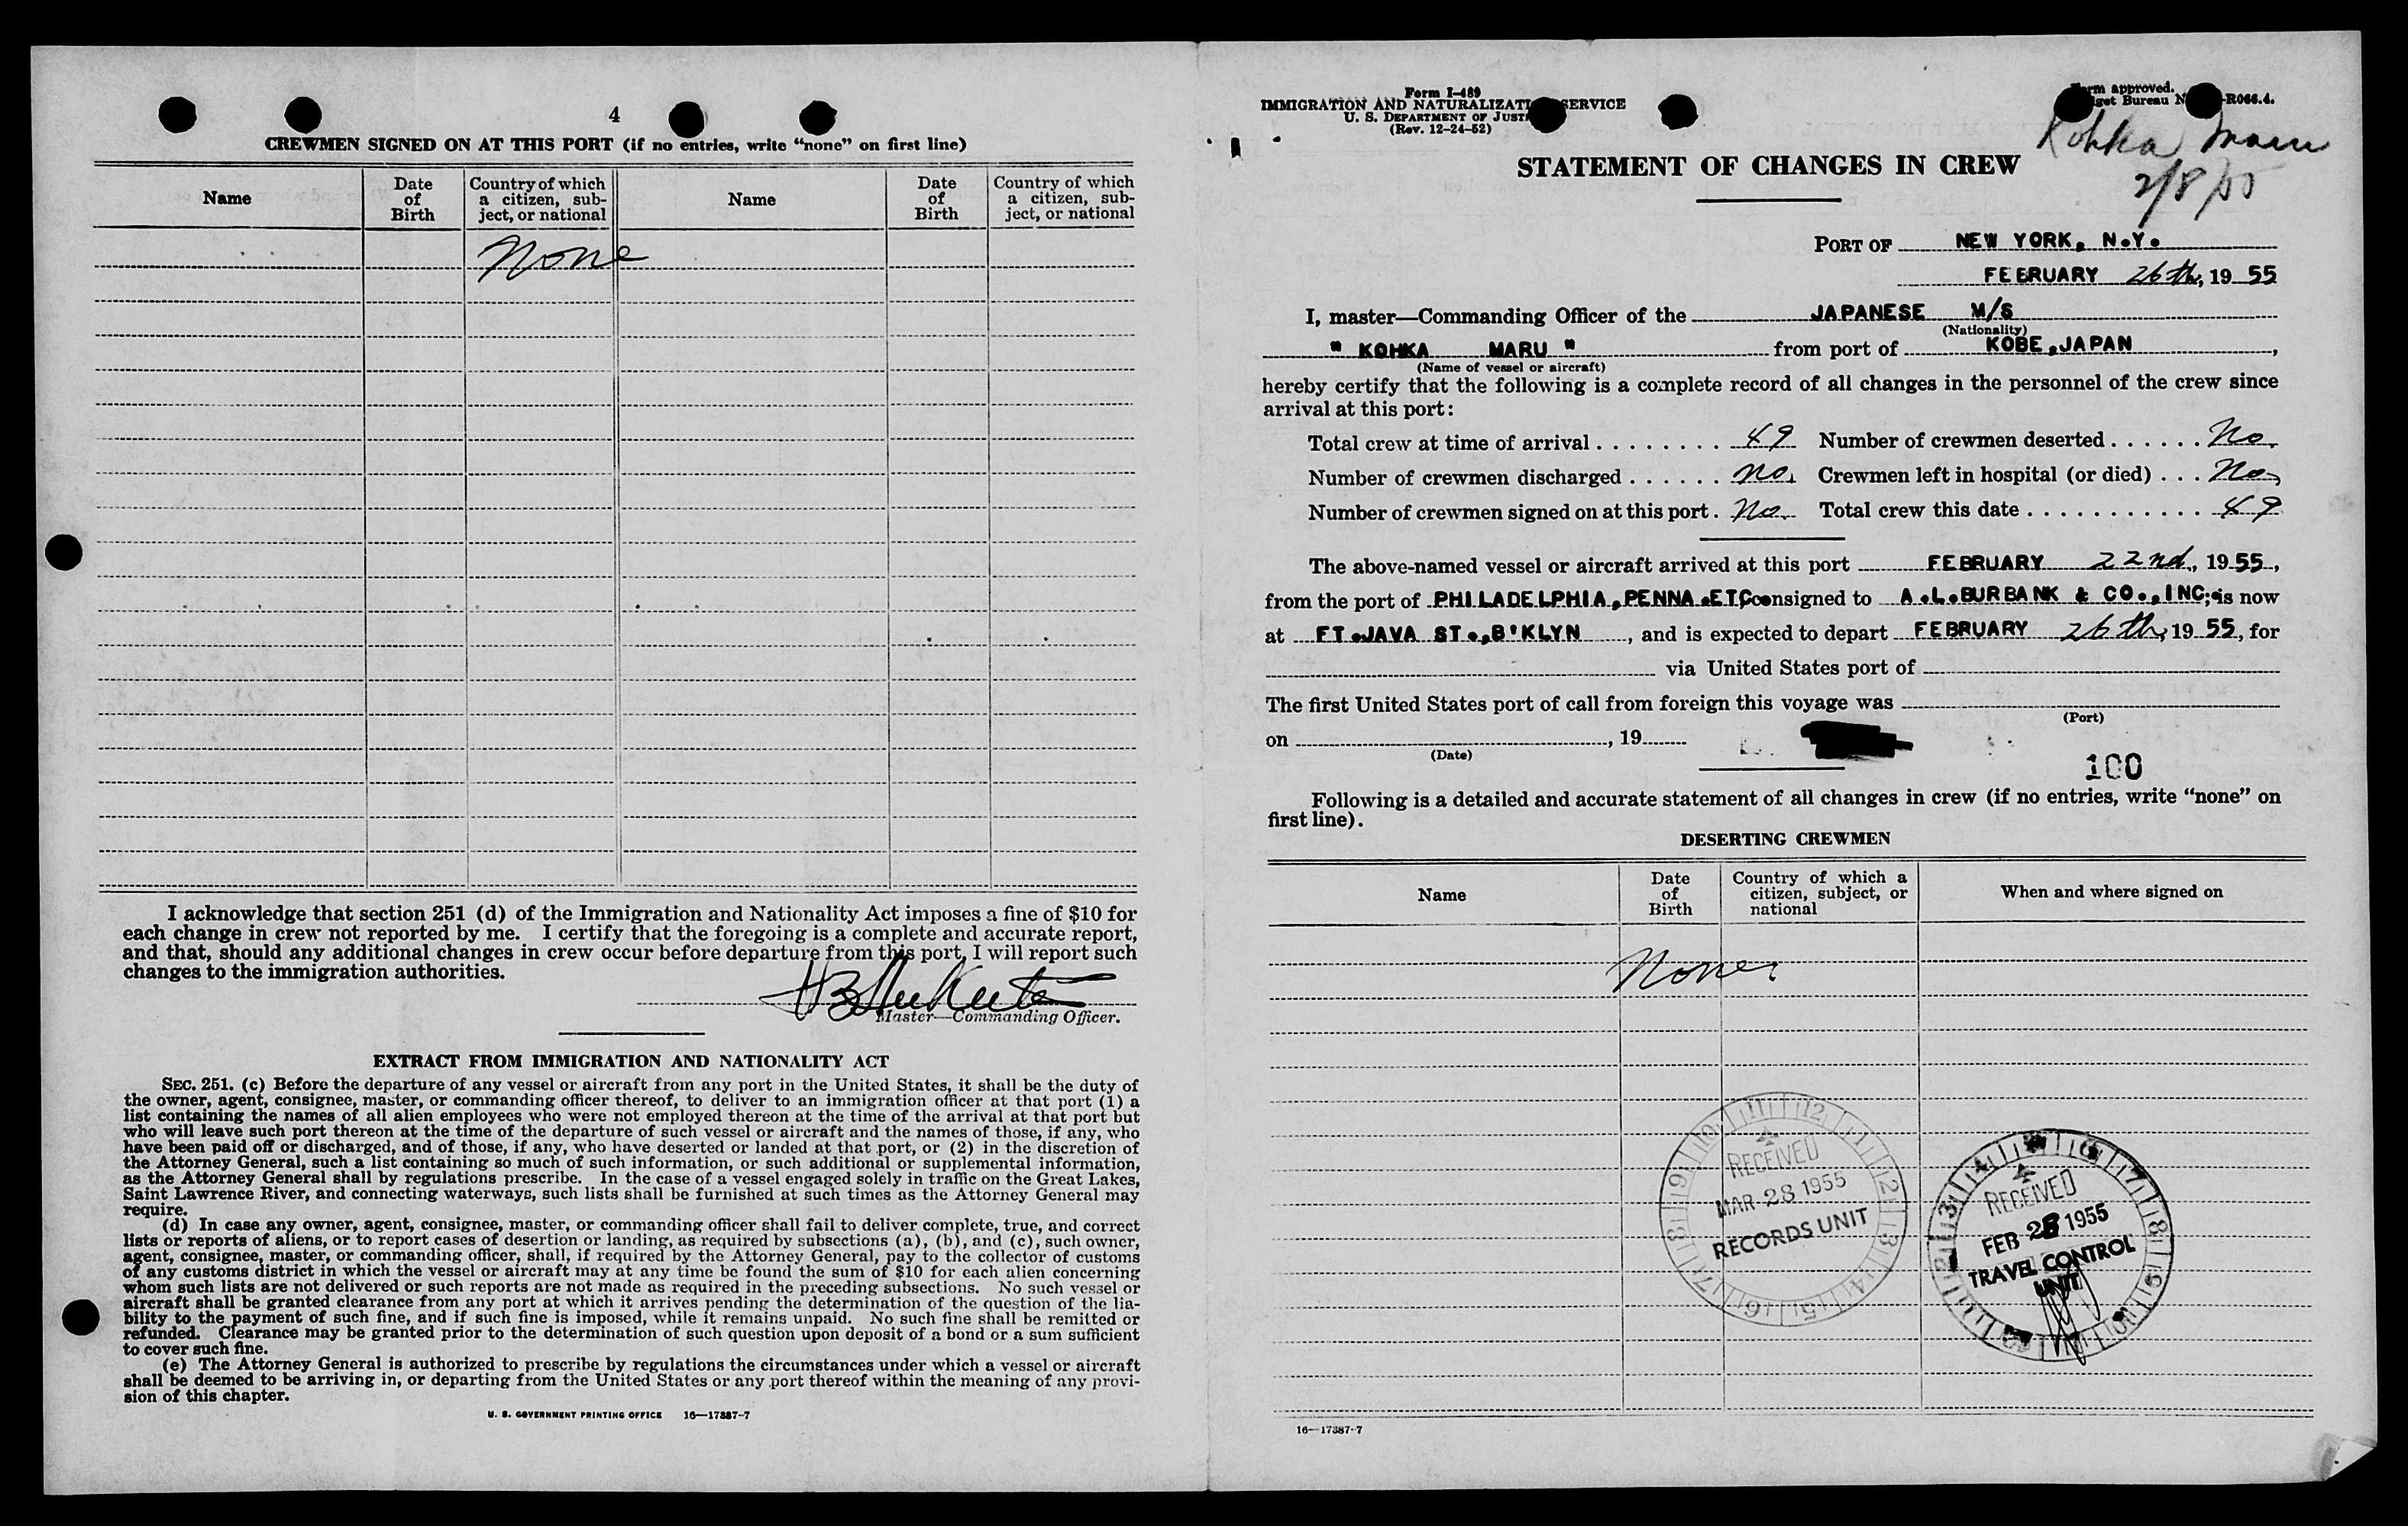 4
CREWMEN SIGNED ON AT THIS PORT (if no entries, write "none" on first line)
Name Date of Birth Country of which a citizen, subject, or national Name Date of Birth Country of which a citizen, subject, or national
None
I acknowledge that section 251 (d) of the Immigration and Nationality Act imposes a fine of $10 for
each change in crew not reported by me. I certify that the foregoing is a complete and accurate report,
and that, should any additional changes in crew occur before departure from this port, I will report such
changes to the immigration authorities.
Master—Commanding Officer.
EXTRACT FROM IMMIGRATION AND NATIONALITY ACT
SEC. 251. (c) Before the departure of any vessel or aircraft from any port in the United States, it shall be the duty of
the owner, agent, consignee, master, or commanding officer thereof, to deliver to an immigration officer at that port (1) a
list containing the names of all alien employees who were not employed thereon at the time of the arrival at that port but
who will leave such port thereon at the time of the departure of such vessel or aircraft and the names of those, if any, who
have been paid off or discharged, and of those, if any, who have deserted or landed at that port, or (2) in the discretion of
the Attorney General, such a list containing so much of such information, or such additional or supplemental information,
as the Attorney General shall by regulations prescribe. In the case of a vessel engaged solely in traffic on the Great Lakes,
Saint Lawrence River, and connecting waterways, such lists shall be furnished at such times as the Attorney General may
require.
(d) In case any owner, agent, consignee, master, or commanding officer shall fail to deliver complete, true, and correct
lists or reports of aliens, or to report cases of desertion or landing, as required by subsections (a), (b), and (c), such owner,
agent, consignee, master, or commanding officer, shall, if required by the Attorney General, pay to the collector of customs
of any customs district in which the vessel or aircraft may at any time be found the sum of $10 for each alien concerning
whom such lists are not delivered or such reports are not made as required in the preceding subsections. No such vessel or
aircraft shall be granted clearance from any port at which it arrives pending the determination of the question of the lia-
bility to the payment of such fine, and if such fine is imposed, while it remains unpaid. No such fine shall be remitted or
refunded. Clearance may be granted prior to the determination of such question upon deposit of a bond or a sum sufficient
to cover such fine.
(e) The Attorney General is authorized to prescribe by regulations the circumstances under which a vessel or aircraft
shall be deemed to be arriving in, or departing from the United States or any port thereof within the meaning of any provi-
sion of this chapter.
U. S. GOVERNMENT PRINTING OFFICE 16—17387-7
Form I-489
IMMIGRATION AND NATURALIZATI SERVICE
U. S. DEPARTMENT OF JUST
(Rev. 12-24-52)
rm approved.
get Bureau N -R066.4.
Kohka Maru
2/8/55
STATEMENT OF CHANGES IN CREW
PORT OF NEW YORK, N.Y.
FEBRUARY 26th, 19 55
I, master—Commanding Officer of the JAPANESE M/S
(Nationality)
" KOHKA MARU " from port of KOBE, JAPAN,
(Name of vessel or aircraft)
hereby certify that the following is a complete record of all changes in the personnel of the crew since
arrival at this port:
Total crew at time of arrival . . . . . . . . 49 Number of crewmen deserted . . . . . . No.
Number of crewmen discharged . . . . . . no. Crewmen left in hospital (or died) . . . No.
Number of crewmen signed on at this port . No. Total crew this date . . . . . . . . . . . 49
The above-named vessel or aircraft arrived at this port FEBRUARY 22nd, 19 55,
from the port of PHILADELPHIA, PENNA. ETC consigned to A.L. BURBANK & CO., INC; is now
at FT. JAVA ST., B'KLYN, and is expected to depart FEBRUARY 26th, 19 55, for
via United States port of
The first United States port of call from foreign this voyage was
(Port)
on , 19
(Date)
100
Following is a detailed and accurate statement of all changes in crew (if no entries, write "none" on
first line).
DESERTING CREWMEN
Name Date of Birth Country of which a citizen, subject, or national When and where signed on
None
RECEIVED
MAR 28 1955
RECORDS UNIT
RECEIVED
FEB 28 1955
TRAVEL CONTROL
UNIT
16—17387-7